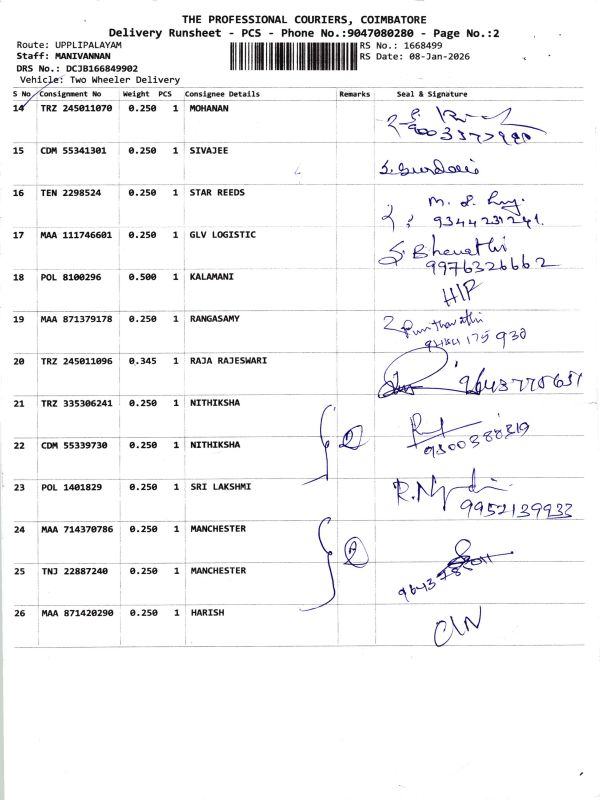 THE PROFESSIONAL COURIERS, COIMBATORE
Delivery Runsheet - PCS - Phone No.:9047080280 - Page No.:2
Route: UPPLIPALAYAM RS No.: 1668499
Staff: MANIVANNAN RS Date: 08-Jan-2026
DRS No.: DCJB166849902
Vehicle: Two Wheeler Delivery
S No Consignment No Weight PCS Consignee Details Remarks Seal & Signature
14 TRZ 245011070 0.250 1 MOHANAN
15 CDM 55341301 0.250 1 SIVAJEE
16 TEN 2298524 0.250 1 STAR REEDS
9344231241.
17 MAA 111746601 0.250 1 GLV LOGISTIC
S. Bharathi
9976326662
18 POL 8100296 0.500 1 KALAMANI
H/P
19 MAA 871379178 0.250 1 RANGASAMY
20 TRZ 245011096 0.345 1 RAJA RAJESWARI
21 TRZ 335306241 0.250 1 NITHIKSHA
22 CDM 55339730 0.250 1 NITHIKSHA
9300388319
23 POL 1401829 0.250 1 SRI LAKSHMI
9952139932
24 MAA 714370786 0.250 1 MANCHESTER
25 TNJ 22887240 0.250 1 MANCHESTER
26 MAA 871420290 0.250 1 HARISH